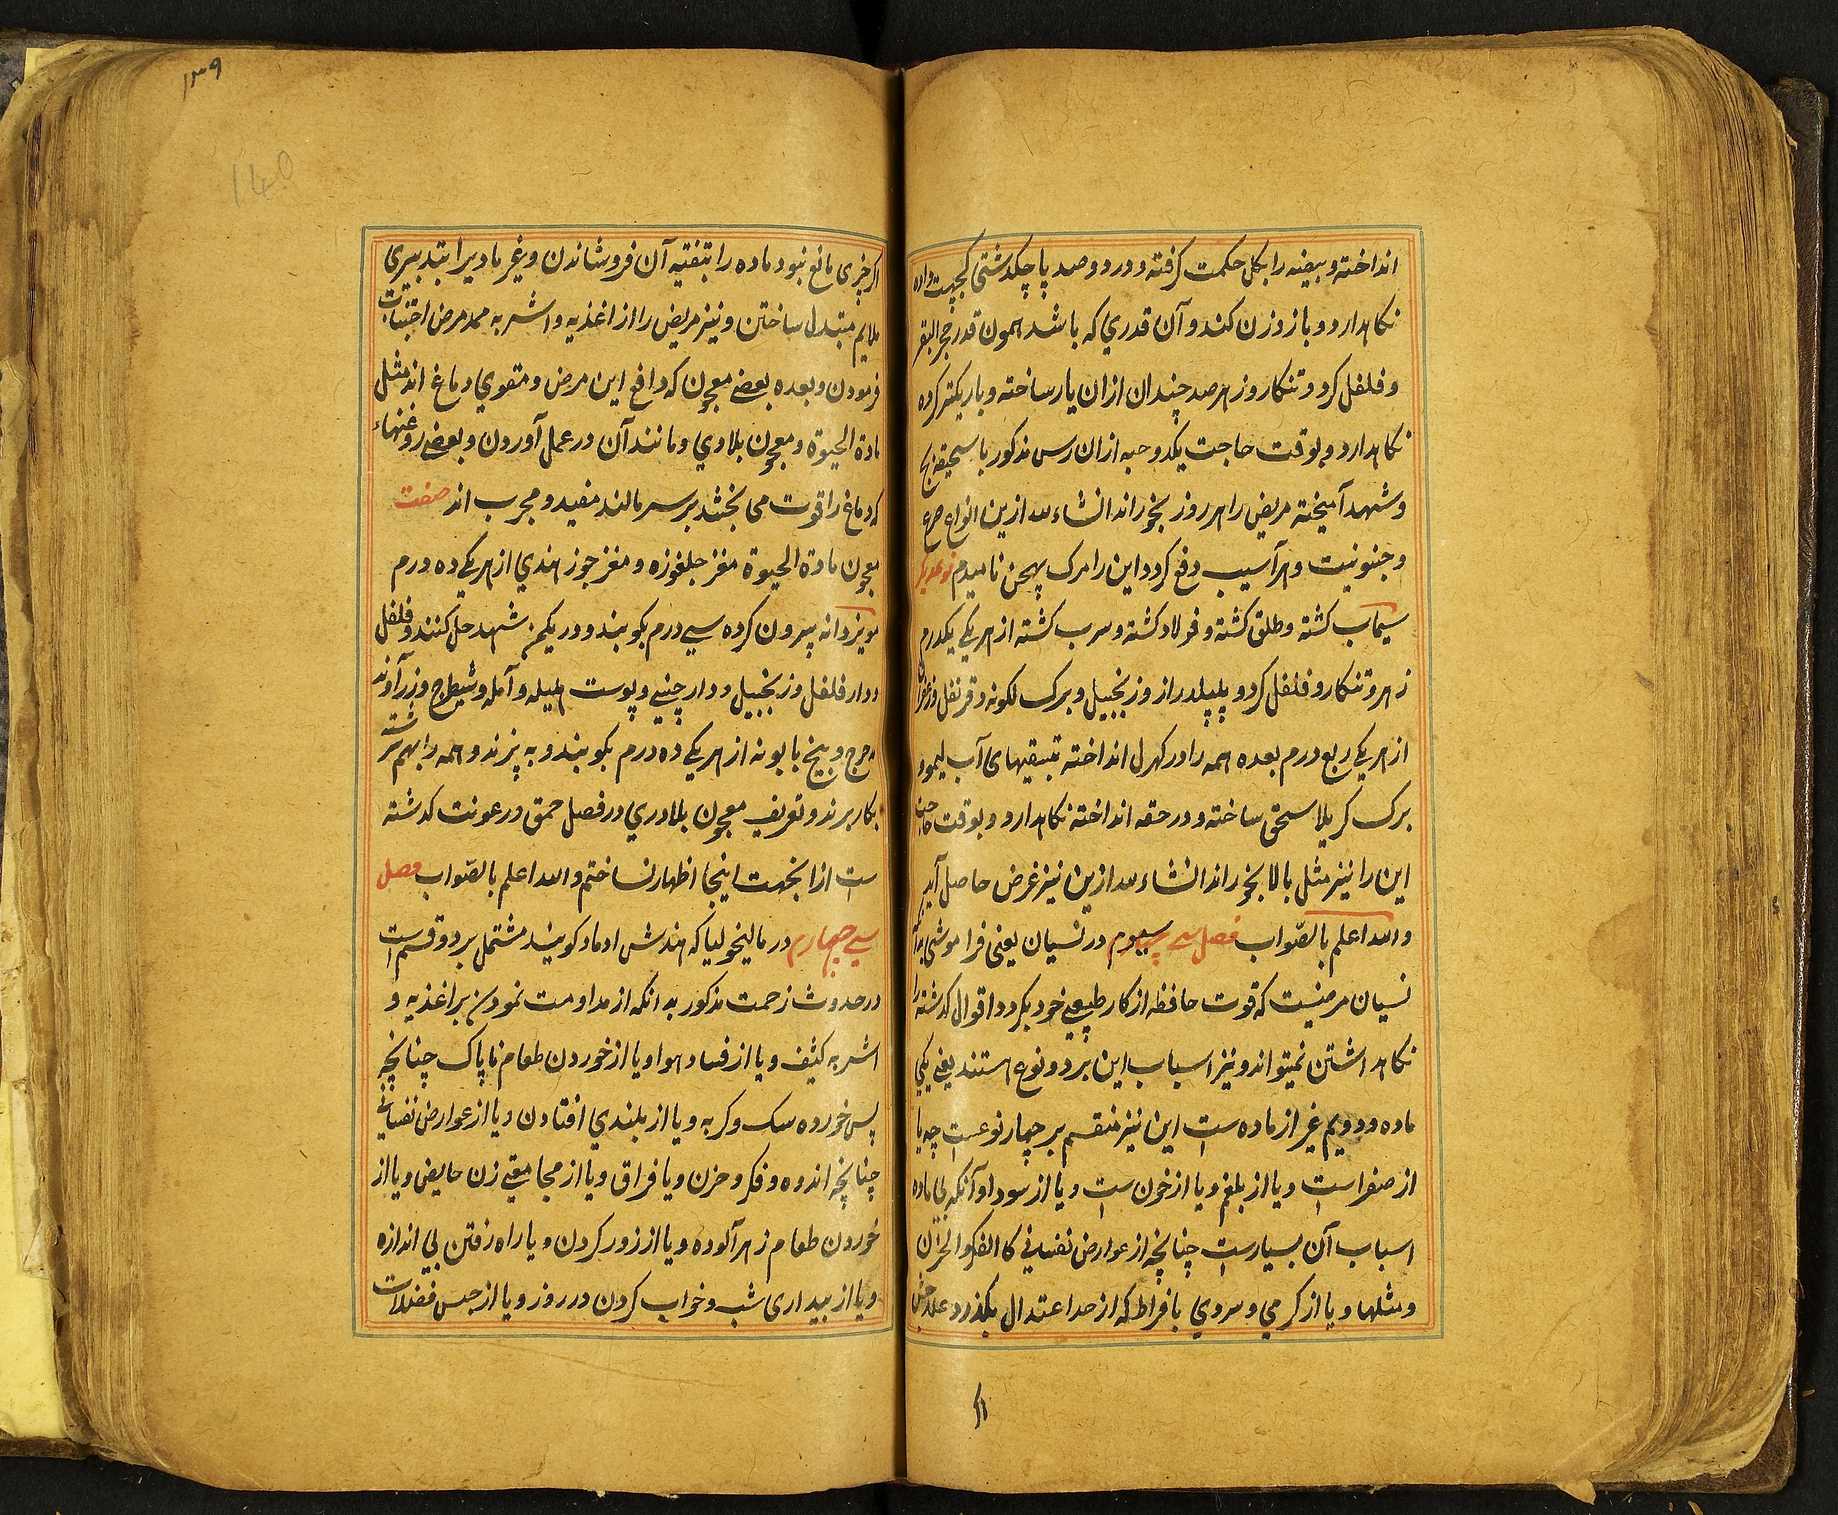 انداخته و بیضه را بکل حکمت کرفته و در دو صد پاچکدشتی کجپت داده
نکاهدارد و باز وزن کند و آن قدری که باشد همون قدر حجر البقر
و فلفل کرد و تنکار و زهر صد چندان ازان یار ساخته و باریکتر کرده
نکاهدارد و بوقت حاجت یکدو حبه ازان رس مذکور با
و شهد آمیخته مریض را هر روز بخوراند انشاء الله ازین انواع صرع
و جنونیت و هر آسیب دفع کردد این را مرک نامیدم نوعدیکر
سیماب کشته و طلق کشته و فولاد کشته و سرب کشته از هر یکی یکدرم
زهر و تنکار و فلفل کرد و پیپلدراز و زنجبیل و برک لکونه و قرنفل و زعفران
از هر یکی ربع درم بعده همه را در کهرل انداخته بتسقیهای آب لیمو و
برک کریلا سحق ساخته و در حقه انداخته نکاهدارد و بوقت حاجت
این را نیز مثل بالا بخوراند انشاء الله ازین نیز غرض حاصل آید
والله اعلم بالصواب فصل سی سیوم در نسیان یعنی فراموشی بدانکه
نسیان مرضیست که قوت حافظه از کار طبیعی خود بکردد اقوال کذشته را
نکاهداشتن نمیتواند و نیز اسباب این بر دو نوع استند یعنی یکی
ماده و دویم غیر از ماده ست این نیز منقسم بر چهار نوعست چه یا
از صفراست و یا از بلغم و یا از خون ست و یا از سودا و آنکه بی ماده
اسباب آن بسیارست چنانچه از عوارض نفسانی کالفکر والحزن
و مثلها و یا از کرمی و سردی بافراط که از حد اعتدال بکذرد علاجش
۱۳۹
140
اکر چیزی مانع نبود ماده را بتنقیه آن فروشاندن و غیر مادیرا بتدبیری
ملایم مبتدل ساختن و نیز مریض را از اغذیه و اشربه ممد مرض اجتناب
فرمودن و بعده بعضی معجون که دافع این مرض و مقوی دماغ اند مثل
مادة الحیوة و معجون بلادری و مانند آن در عمل آوردن و بعضی روغنهاء
که دماغ را قوت می بخشد بر سر مالند مفید و مجرب اند صفت
معجون مادة الحیوة مغز جلغوزه و مغز جوز هندی از هر یکی ده درم
مویز دانه بیرون کرده سی درم بکوبند و در یکمن شهد حل کنند و فلفل
و دار فلفل و زنجبیل و دار چینی و پوست هلیله و آمله و شیطرج و زرآوند
و بیخ بابونه از هر یکی ده درم بکوبند و به پزند و همه را بهم سرشته
بکار برند و تعریف معجون بلادری در فصل حمق و رعونت کذشته
ست ازانجهت اینجا اظهار نساختم والله اعلم بالصواب فصل
سی چهارم در مالیخولیا که هندش ادماد کویند مشتمل بر دو قسم است
در حدوث زحمت مذکور بدانکه از مداومت نمودن بر اغذیه و
اشربه کثیف و یا از فساد هوا و یا از خوردن طعام ناپاک چنانچه
پس خورده سک و کربه و یا از بلندی افتادن و یا از عوارض نفسانی
چنانچه اندوه و فکر و حزن و یا فراق و یا از مجامعتی زن حایض و یا از
خوردن طعام زهرآلوده و یا از زور کردن و یا راه رفتن بی اندازه
و یا از بیداری شب و خواب کردن در روز و یا از حبس فضلات